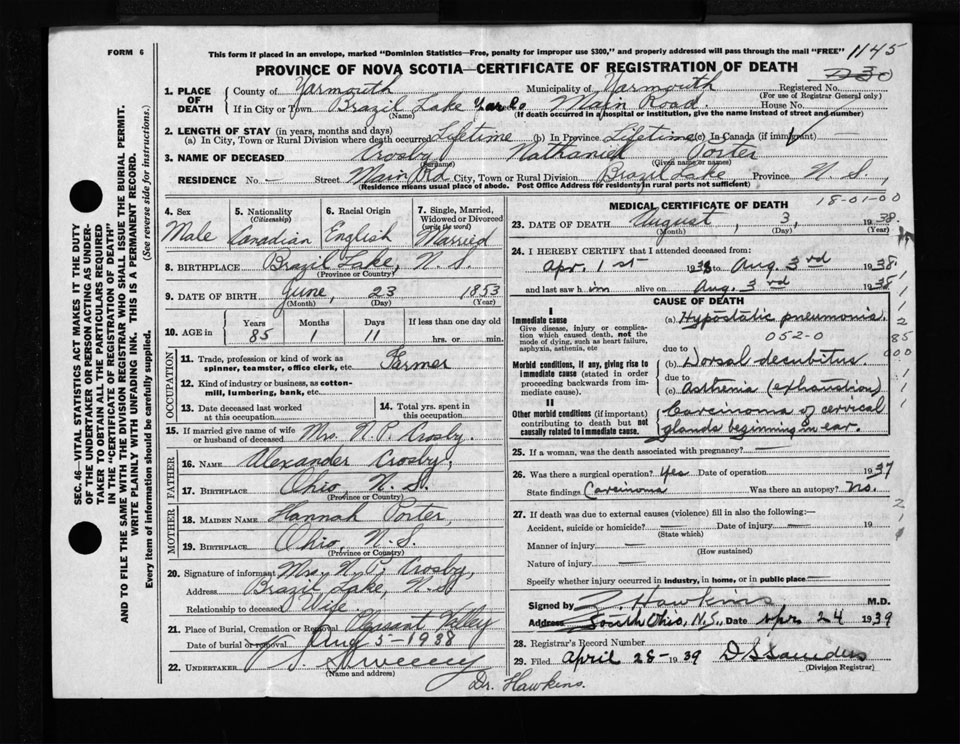 FORM 6
This form if placed in an envelope, marked "Dominion Statistics—Free, penalty for improper use $300," and properly addressed will pass through the mail "FREE"
1145
PROVINCE OF NOVA SCOTIA—CERTIFICATE OF REGISTRATION OF DEATH
1. PLACE OF DEATH County of Yarmouth Municipality of Yarmouth Registered No.
(For use of Registrar General only)
If in City or Town Brazil Lake Yar Co Main Road. House No.
(Name) (If death occurred in a hospital or institution, give the name instead of street and number)
2. LENGTH OF STAY (in years, months and days)
(a) In City, Town or Rural Division where death occurred Lifetime (b) In Province Lifetime (c) In Canada (if immigrant) —
3. NAME OF DECEASED Crosby Nathaniel Porter
(Surname) (Given name or names)
RESIDENCE No. — Street Main Rd City, Town or Rural Division Brazil Lake, Province N. S.,
(Residence means usual place of abode. Post Office Address for residents in rural parts not sufficient)
SEC. 46—VITAL STATISTICS ACT MAKES IT THE DUTY
OF THE UNDERTAKER OR PERSON ACTING AS UNDER-
TAKER TO OBTAIN ALL THE PARTICULARS REQUIRED
IN THE "CERTIFICATE OF REGISTRATION OF DEATH"
AND TO FILE THE SAME WITH THE DIVISION REGISTRAR WHO SHALL ISSUE THE BURIAL PERMIT.
WRITE PLAINLY WITH UNFADING INK. THIS IS A PERMANENT RECORD.
Every item of information should be carefully supplied. (See reverse side for instructions.)
4. Sex
Male
5. Nationality
(Citizenship)
Canadian
6. Racial Origin
English
7. Single, Married,
Widowed or Divorced
(write the word)
Married
8. BIRTHPLACE Brazil Lake, N. S.
(Province or Country)
9. DATE OF BIRTH June, 23 1853
(Month) (Day) (Year)
10. AGE in Years Months Days If less than one day old
85 1 11 hrs. or min.
OCCUPATION
11. Trade, profession or kind of work as
spinner, teamster, office clerk, etc. Farmer
12. Kind of industry or business, as cotton-
mill, lumbering, bank, etc.
13. Date deceased last worked
at this occupation
14. Total yrs. spent in
this occupation.
15. If married give name of wife
or husband of deceased Mrs. N. P. Crosby.
FATHER
16. NAME Alexander Crosby,
17. BIRTHPLACE Ohio, N. S.
(Province or Country)
MOTHER
18. MAIDEN NAME Hannah Porter,
19. BIRTHPLACE Ohio, N. S.
(Province or Country)
20. Signature of informant Mrs. N. P. Crosby,
Address Brazil Lake, N. S.
Relationship to deceased Wife
21. Place of Burial, Cremation or Removal Pleasant Valley
Date of burial or removal Aug 5-1938
22. UNDERTAKER Sweeney
(Name and address)
Dr. Hawkins.
MEDICAL CERTIFICATE OF DEATH 18-01-00
23. DATE OF DEATH August, 3, 1938.
(Month) (Day) (Year)
24. I HEREBY CERTIFY that I attended deceased from:
Apr. 1st 1938 to Aug. 3rd 1938.
and last saw him alive on Aug. 3rd 1938
CAUSE OF DEATH
I
Immediate cause
Give disease, injury or complica-
tion which caused death, not the
mode of dying, such as heart failure,
asphyxia, asthenia, etc
(a) Hypostatic pneumonia.
052-0
due to
Morbid conditions, if any, giving rise to
immediate cause (stated in order
proceeding backwards from im-
mediate cause).
(b) Dorsal decubitus.
due to
(c) Asthenia (exhaustion)
II
Other morbid conditions (if important)
contributing to death but not
causally related to immediate cause.
Carcinoma of cervical
glands beginning in ear.
25. If a woman, was the death associated with pregnancy? —
26. Was there a surgical operation? Yes Date of operation 1937
State findings Carcinoma Was there an autopsy? No.
27. If death was due to external causes (violence) fill in also the following:—
Accident, suicide or homicide? — Date of injury — 19
(State which)
Manner of injury —
(How sustained)
Nature of injury —
Specify whether injury occurred in industry, in home, or in public place —
Signed by Z. Hawkins M.D.
Address South Ohio, N.S., Date Apr 24 1939
28. Registrar's Record Number
29. Filed April 28- 1939 D S Saunders
(Division Registrar)